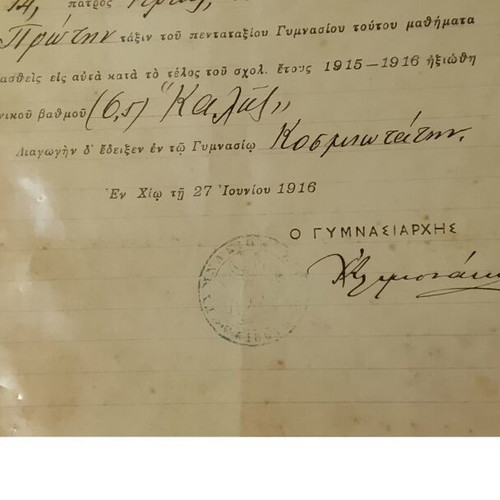 14, πατρὸς
Πρώτην τάξιν τοῦ πενταταξίου Γυμνασίου τούτου μαθήματα
ασθεὶς εἰς αὐτὰ κατὰ τὸ τέλος τοῦ σχολ. ἔτους 1915–1916 ἠξιώθη
νικοῦ βαθμοῦ (6,5) "Καλῶς„
Διαγωγὴν δ' ἔδειξεν ἐν τῷ Γυμνασίῳ Κοσμιωτάτην.
Ἐν Χίῳ τῇ 27 Ἰουνίου 1916
Ο ΓΥΜΝΑΣΙΑΡΧΗΣ